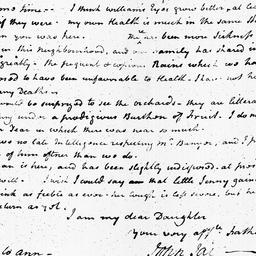 some time -- I think William's Eyes grow better, at le
if they were. my own Health is much in the same
en you was here. There been more sickness
in this Neighbourhood, and our Family has shared i
greatly. the frequent & copious Rains which we ha
posed to have been unfavorable to Health. I have not he
any Deaths in
would be surprized to see the orchards - they are litera
ing under a prodigious Burthen of Fruit. I do no
a Year in which there was near so much.
ave no late Intelligence respecting Mr Banyer, and I p
of him oftner than we do.
an is here, and has been slightly indisposed at pres
well. I wish I could say that little Jenny gain
think as feeble as ever. her cough is less severe, but he
return as yet.
I am my dear Daughter
Your very affte Fath
John Jay
to Ann -